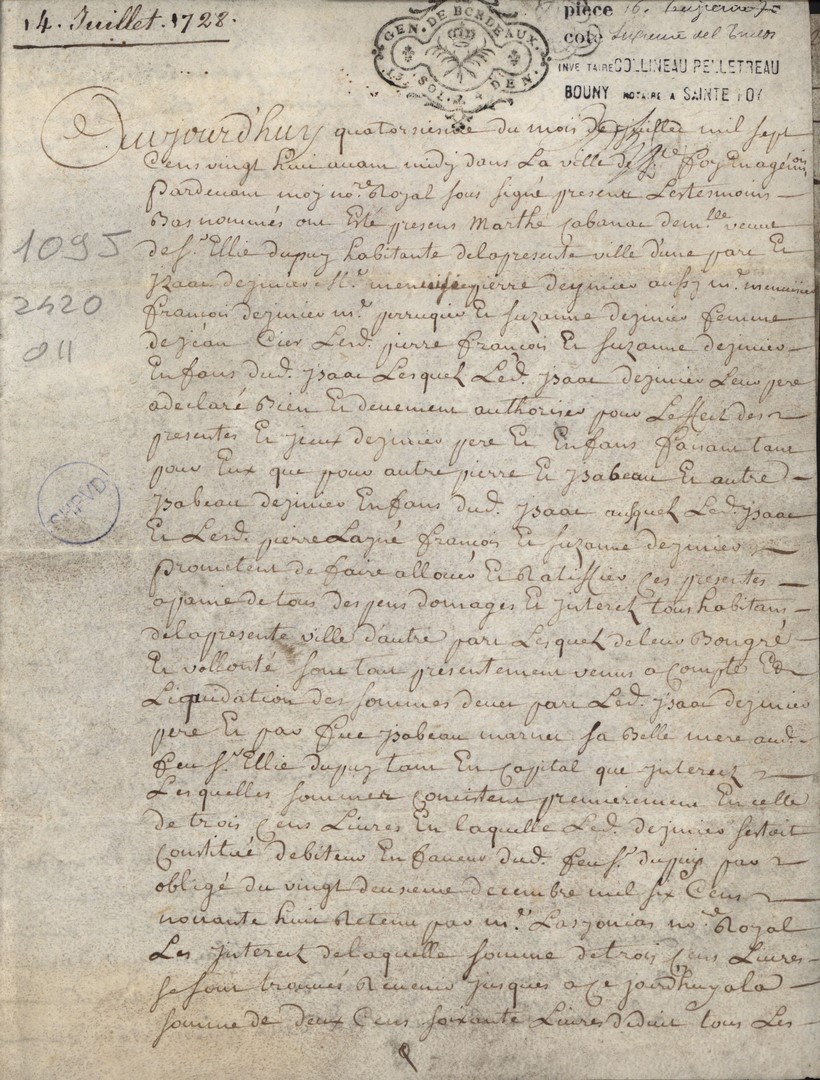 14. Juillet. 1728.
GEN. DE BORDEAUX.
SOL. 4 DEN.
pièce 16.
cote
INVENTAIRE COLLINEAU PELLETREAU
BOUNY NOTAIRE A SAINTE FOY
Aujourd'huy quatorsiesme du mois de juillet mil sept
Cens vingt huit avant midy dans La ville de Ste Foy En agénois
Pardevant moy nore. Royal sous signé presens Les tesmoins –
Bas nommés ont Esté presens Marthe Cabanac demlle veuve
de sr. Ellie dupuy habitante de la presente ville d'une part Et
Izaac dejunier Mr. menusier pierre dejunier aussy mr. menuisier
françois dejunier mr. perruquier Et suzanne dejunier femme
de jean Cier Lesd. pierre françois Et suzanne dejunier –
Enfans dud. jsaac Lesquels Led. jsaac dejunier Leur pere
a declaré Bien Et deuement authoriser pour Leffect des
presentes Et jceux dejunier pere Et Enfans faisant tant
pour Eux que pour autre pierre Et jsabeau Et autre
jsabeau dejunier Enfans dud. jsaac ausquels Led. jsaac
Et Lesd. pierre Layné françois Et suzanne dejunier
prometent de faire allouer Et Ratiffier Ces presentes –
a paine de tous despens domages Et jnterets tous habitans
de la presente ville d'autre part Lesquels de leur Bon gré –
Et vollonté sont tant presentement venus a Compte Et
Liquidation des sommes deues par Led. jsaac dejunier
pere Et par feue jsabeau marner sa Belle mere aud.
feu sr. Ellie dupuy tant En Capital que jnterets
Lesquelles sommes Concistent premierement En celle
de trois Cens Livres En laquelle Led. dejunier sestoit
Constitué debiteur En faveur dud. feu sr. dupuy par
obligé du vingt deuxieme decembre mil six Cens
nonante huit Retenu par mr. Lasjonias nore. Royal
Les jnterets de laquelle somme de trois Cens Livres
se sont trouvés Revenir jusques a Ce jourd'huy a la
somme de deux Cens soixante Livres deduit tous Les –
1095
2420
011
SHPVD